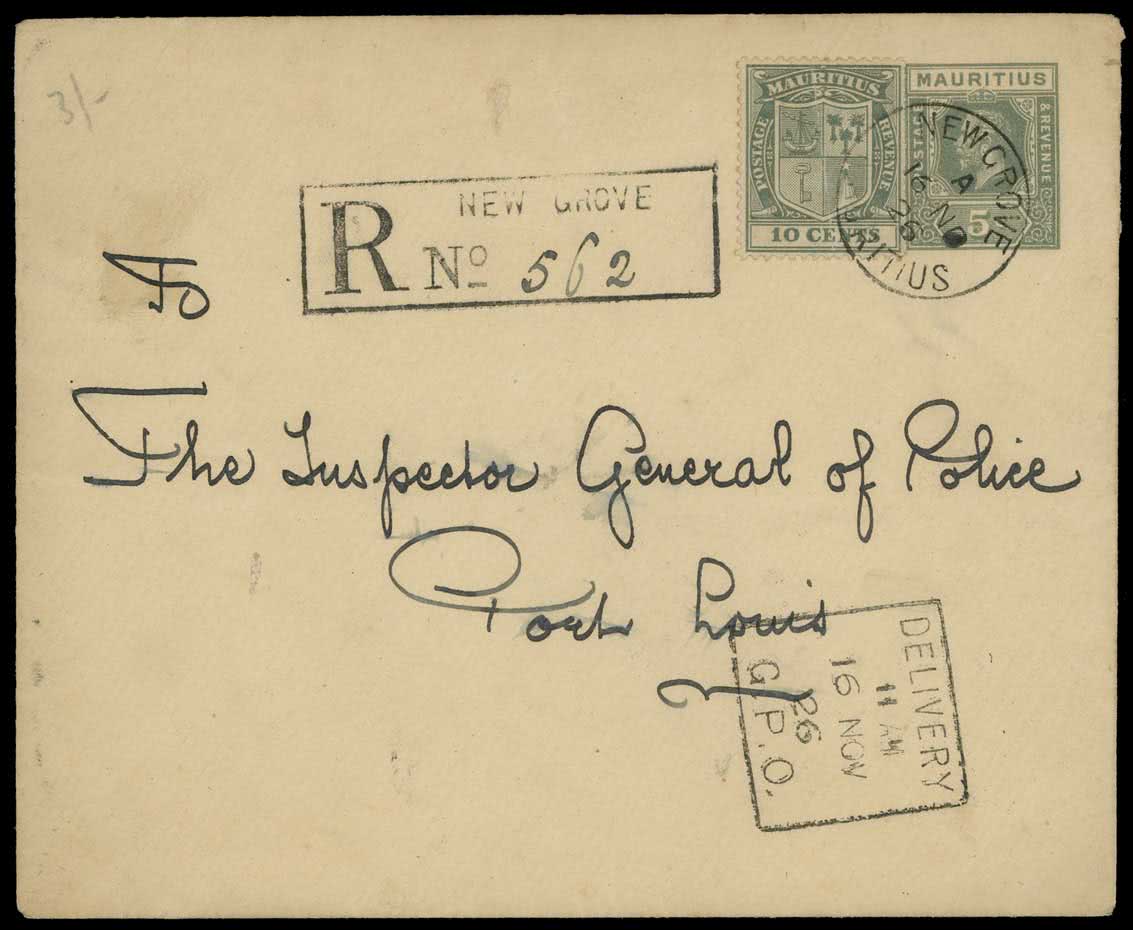 3/-
MAURITIUS
POSTAGE
REVENUE
10 CENTS
MAURITIUS
POSTAGE
& REVENUE
5
NEW GROVE
A
16 NO
26
RITIUS
R
NEW GROVE
No 562
To
The Inspector General of Police
Port Louis
DELIVERY
11 AM
16 NOV
26
G.P.O.